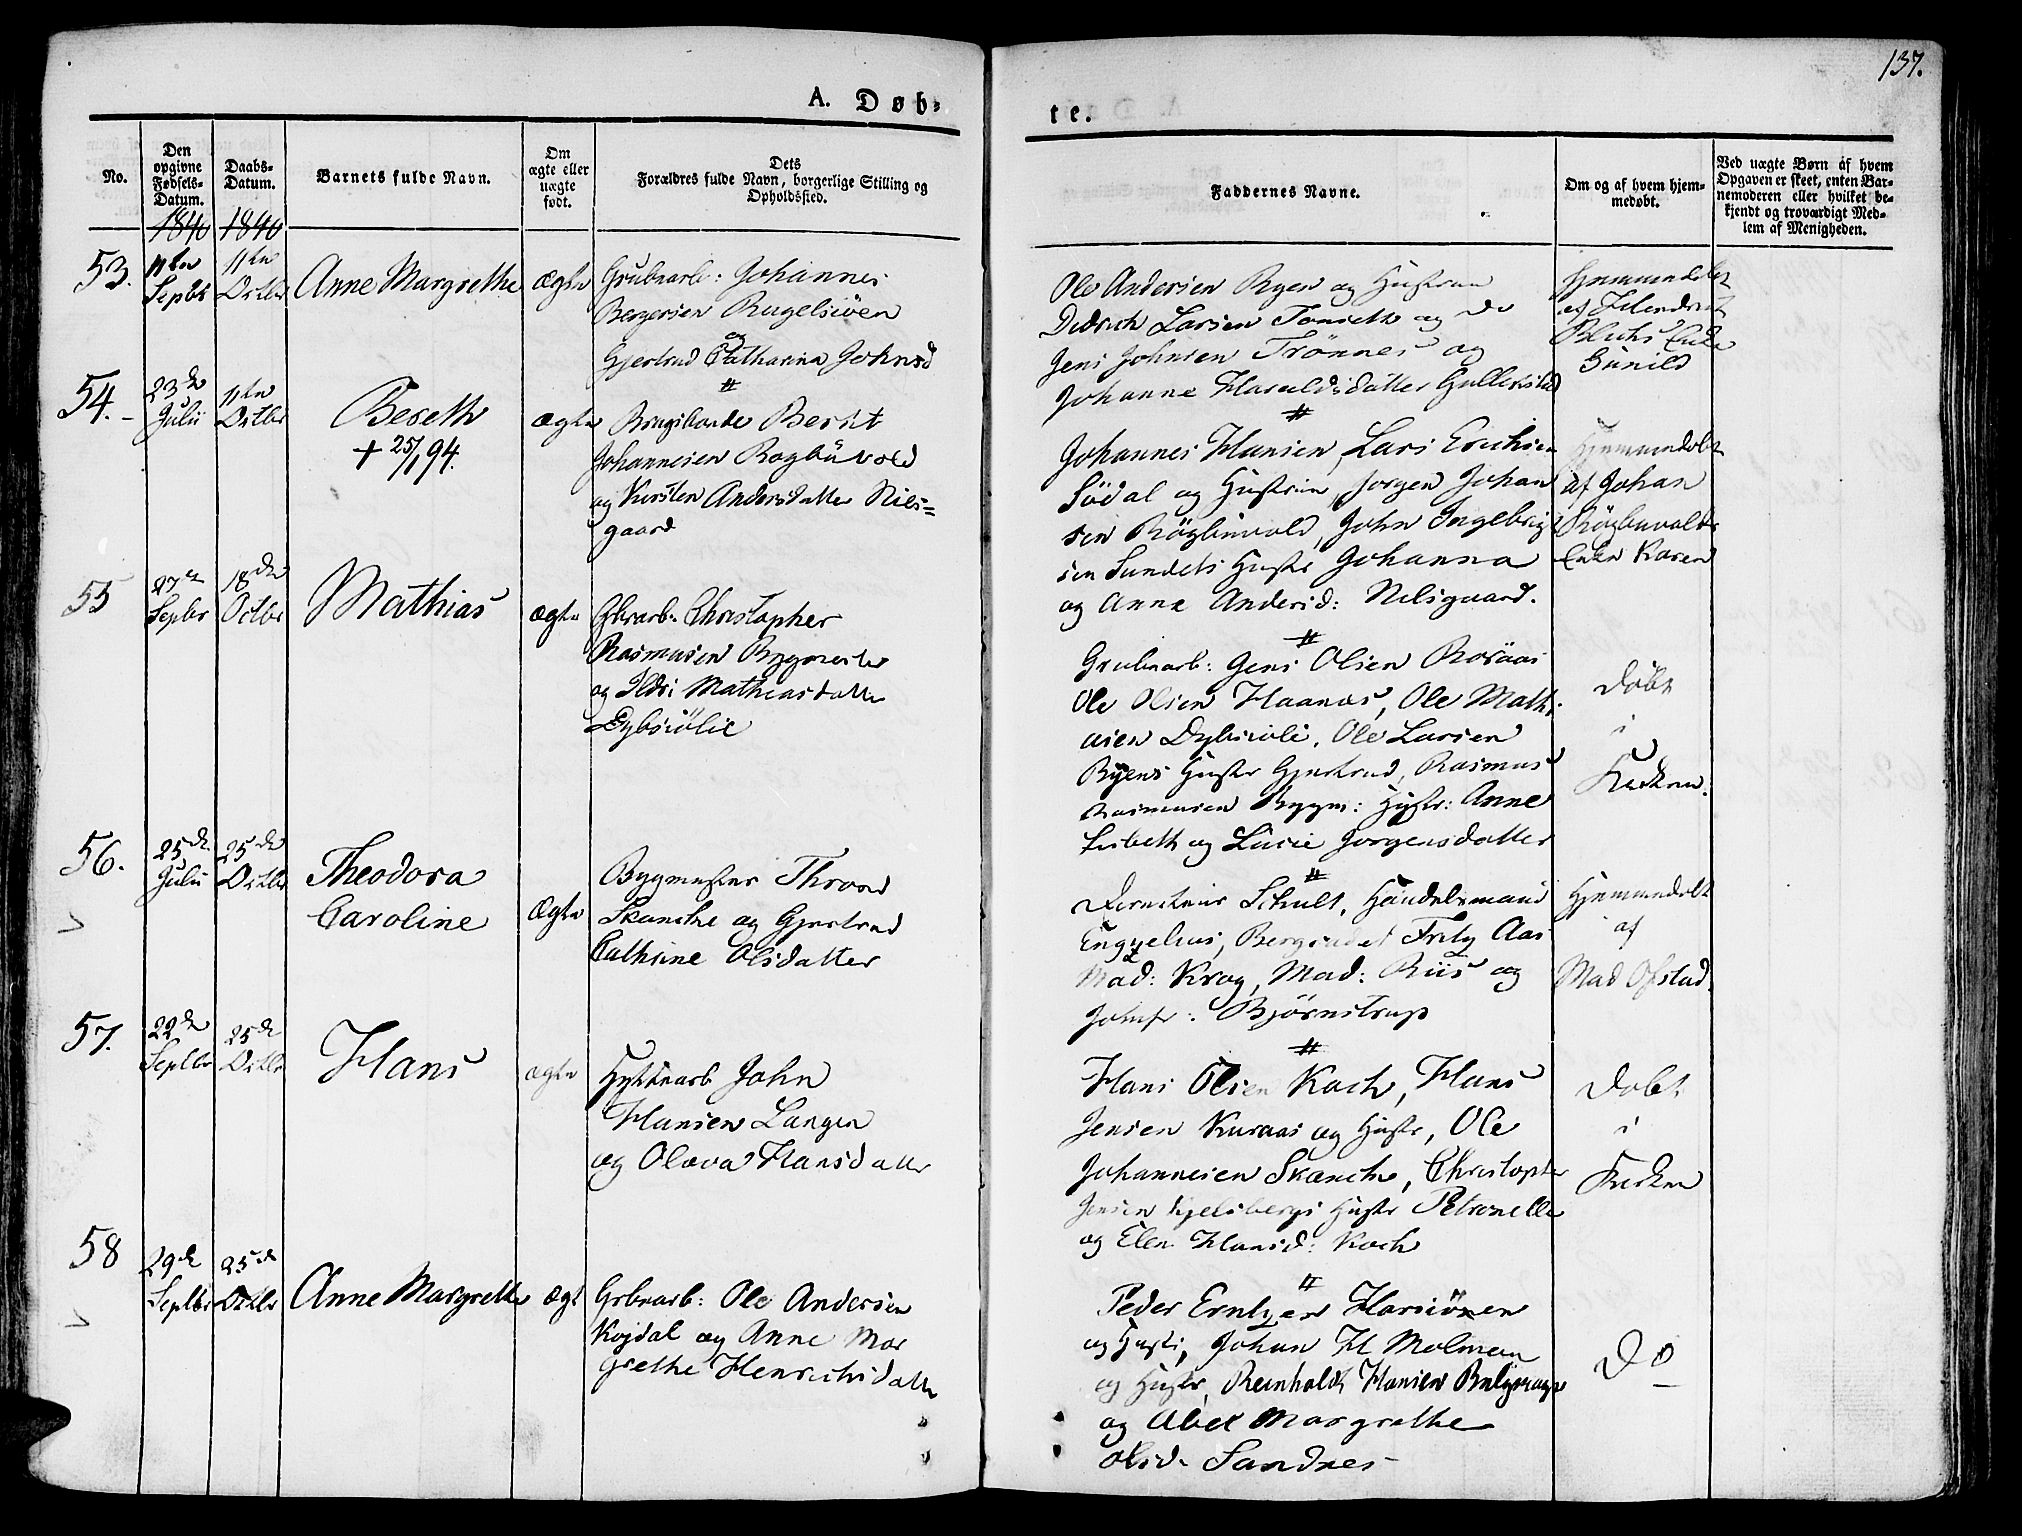 137.
A. Døb-
te.
No.
Den opgivne Fødsels-Datum.
Daabs-Datum.
Barnets fulde Navn.
Om ægte eller uægte født.
Dets Forældres fulde Navn, borgerlige Stilling og Opholdssted.
Faddernes Navne.
Om og af hvem hjemmedøbt.
Ved uægte Børn af hvem Opgaven er skeet, enten Barnemoderen eller hvilket bekjendt og troværdigt Medlem af Menigheden.
1840 1840
53.
11te Septbr
11te Octbr
Anne Margrethe
ægte
Grubearb: Johannes
Bergersen Rugelsiøen
og
Gjertrud Catharina Johnsd
Ole Andersen Ryen og Hustrue
Didrich Larsen Tonseth og do
Jens Johnsen Trönnes og
Johanne Haraldsdatter Gullikstad
Hjemmedøbt
af Hendrich
Enke
Gunild
54.
23de Julii
11te Octbr
Beseth
+ 25/1 94.
ægte
Brugsbonde Bersvt
Johannesen Rogbuvold
og Kirsten Andersdatter Nils=
gaard
Johannes Hansen, Lars Erichsen
Södal og Hustrue, Jorgen Johan
sen Rögbuvold, John Ingebrigt
sen Sundets Hustr Johanna
og Anne Andersd: Nilsgaard.
Hjemmedøbt
af Johan
Rögbuvolds
Enke Karen
55
27de Septbr
18de Octbr
Mathias
ægte
Gbrarb: Christopher
Rasmusen Bygmester
og Ildri Mathiasdatter
Dybsiölie
Grubearb: Jens Olsen Rosaas
Ole Olsen Haanæs, Ole Mathi
asen Dybsiolie, Ole Larsen
Ryens Hustr Gjertrud, Rasmus
Rasmusen Bygm: Hustr: Anne
Lisbeth og Lucie Jorgensdatter
Døbt
i
Kirken.
56.
25de Julii
25de Octbr
Theodora
Caroline
Ægte
Bygmester Thrond
Skancke og Gjertrud
Cathrine Olsdatter
Directeur Schult, Handelsmand
Engzelius, Bergcadet Fritz Aas
Mad: Krog, Mad: Riis og
Jomfr: Bjørnstrup
Hjemmedøbt
af
Mad Ofstad.
57.
22de Septbr
25de Octbr
Hans
ægte
Hyttearb John
Hansen Langen
og Olava Hansdatter
Hans Olsen Koch, Hans
Jensen Kuraas og Hustr, Ole
Johannesen Skancke, Christopher
Jensen Hjelsbergs Hustr Petronelle
og Elen Hansd: Koch
Døbt
i
Kirken
58
29de Septbr
25de Octbr
Anne Margrethe
Ægt
Grbearb: Ole Andersen
Kojdal og Anne Mar
grethe Henrichsdatter
Peder Erntzen Harsiöen
og Hustr, Johan H Molman
og Hustr, Reinholdt Hansen
og Abel Margrethe
Olsd. Sandnes
Do